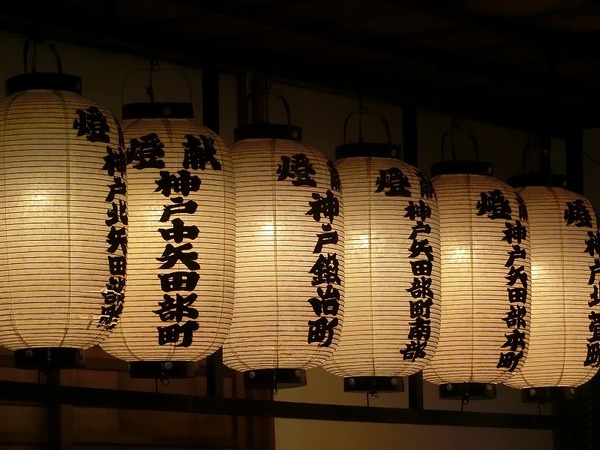 燈
神戸北矢田部町
献燈
神戸中矢田部町
献燈
神戸鍛冶町
献燈
神戸矢田部町南部
献燈
神戸矢田部本町
燈
神戸北萱町